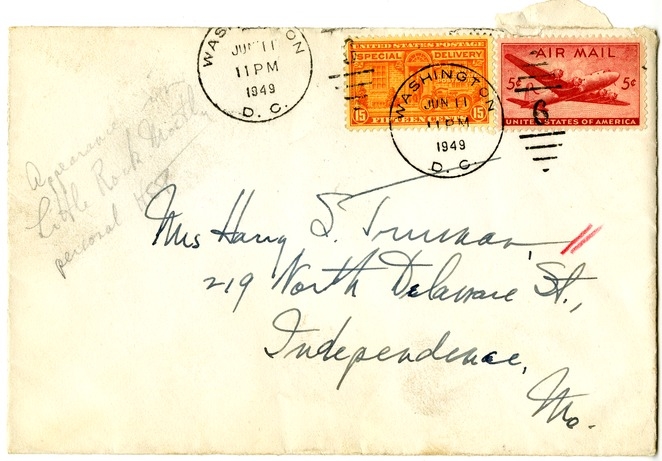 WASHINGTON
JUN 11
11 PM
1949
D. C.
UNITED STATES POSTAGE
SPECIAL DELIVERY
15 FIFTEEN CENTS 15
AIR MAIL
5¢ 5¢
UNITED STATES OF AMERICA
WASHINGTON
JUN 11
11 PM
1949
D. C.
6
Appearance
Little Rock
personal HST
Mrs Harry S. Truman,
219 North Delaware St.,
Independence,
Mo.